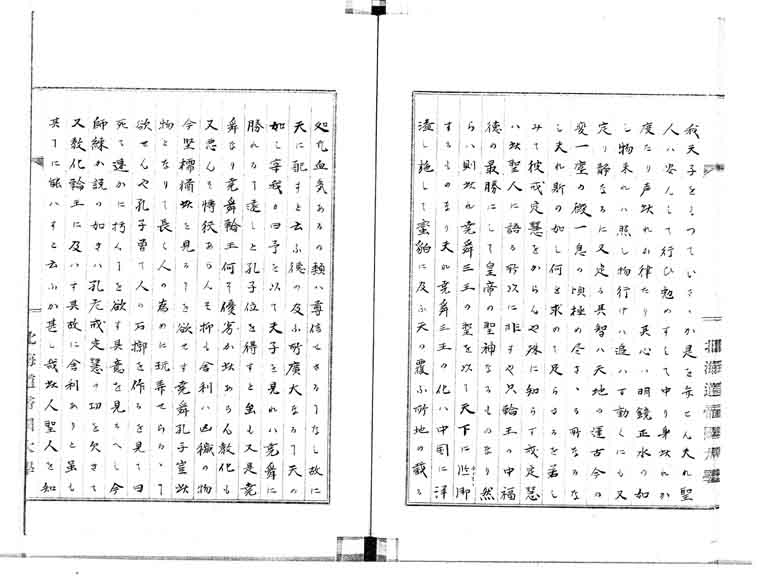 我天子をもつていさゝか是を弁せん夫れ聖
人ハ安んして行ひ勉めすして中り身此れか
度たり声此れか律たり其心ハ明鏡正水の如
し物来れハ照し物行けハ追ハす動くにも又
定り静なるにも又定る其智ハ天地の運古今の
変一塵の微一息の頃極め尽さゝる所なるな
し夫れ斯の如し何と求めて足らさるを若し
みて彼戒定慧をからんや殊に知らす戒定慧
ハ此聖人に語る所以に非すや只輪王の中福
徳の最勝にして皇帝の聖神なるものなり然
らハ則此れ堯舜三王の聖を以て天下に照御
するものなり夫れ堯舜三王の化ハ中国に洋
溢し施して蛮貊に及ふ天の覆ふ所地の載る
処凡血気あるの類ハ尊信せさるハなし故に
天に配すと云ふ徳の及ふ所広大なるハ天の
如し宰我か曰予を以て夫子を見れハ堯舜に
勝れる〻遠しと孔子位を得すと虽も又是堯
舜なり堯舜輪王何そ優劣か此あらん教化も
又思んて博狭あらん も抑も舎利ハ凶穢の物
今堅樗橘此を見る〻を欲せす堯舜孔子豈此
物となりて長く人の為めに玩弄せらるゝ〻
欲せんや孔子曽て人の石槨を作るを見て曰
死て速かに朽んゝを欲す其意を見るへし今
師練か説の如きハ孔老戒定慧の功を欠きて
又教化輪王に及ハす其故に舎利ありと虽も
其下に能ハすと云ふか甚し哉此人聖人を知